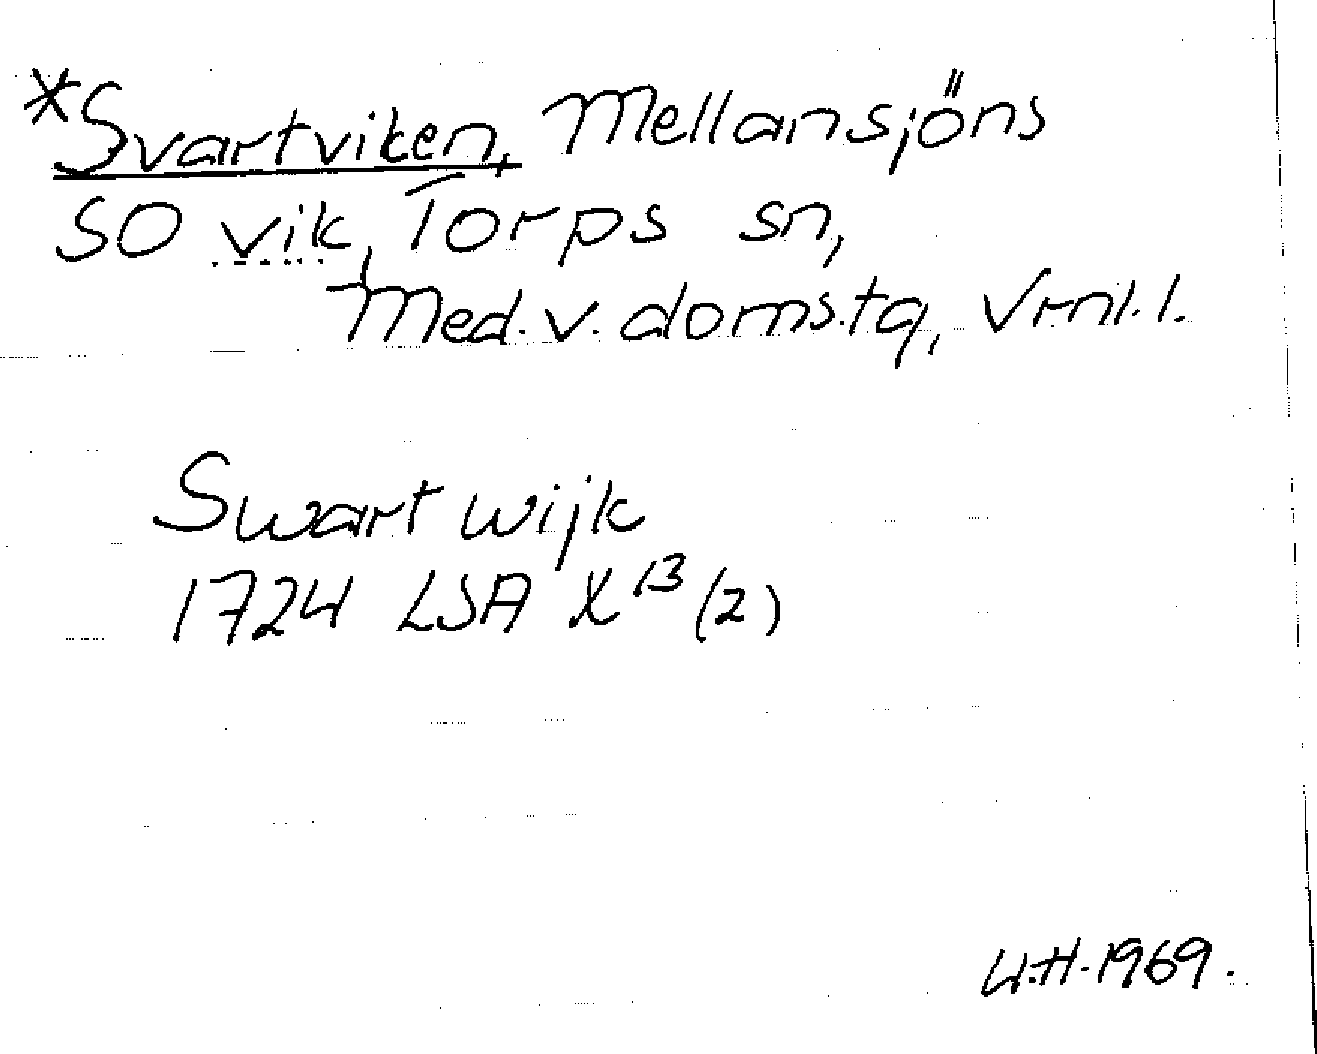 *Svartviken, Mellansjöns
SO vik, Torps sn,
Med. v. doms.tg, Vrnl.l.
Swart wijk
1724 LSA X13 (2)
U.H. 1969.